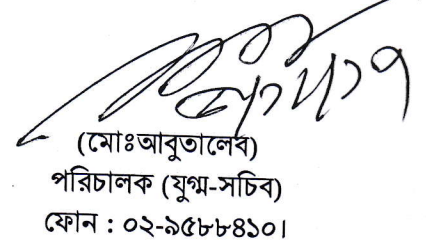 (মোঃআবুতালেব)
পরিচালক (যুগ্ম-সচিব)
ফোন : ০২-৯৫৮৮৪১০।